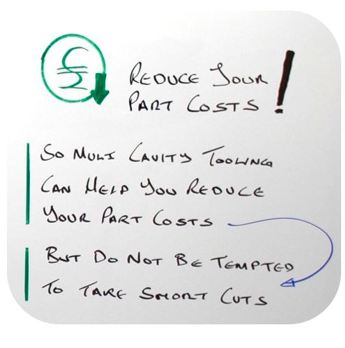 C/2
REDUCE YOUR
PART COSTS!
SO MULI CAVITY TOOLING
CAN HELP YOU REDUCE
YOUR PART COSTS
BUT DO NOT BE TEMPTED
TO TAKE SHORT CUTS